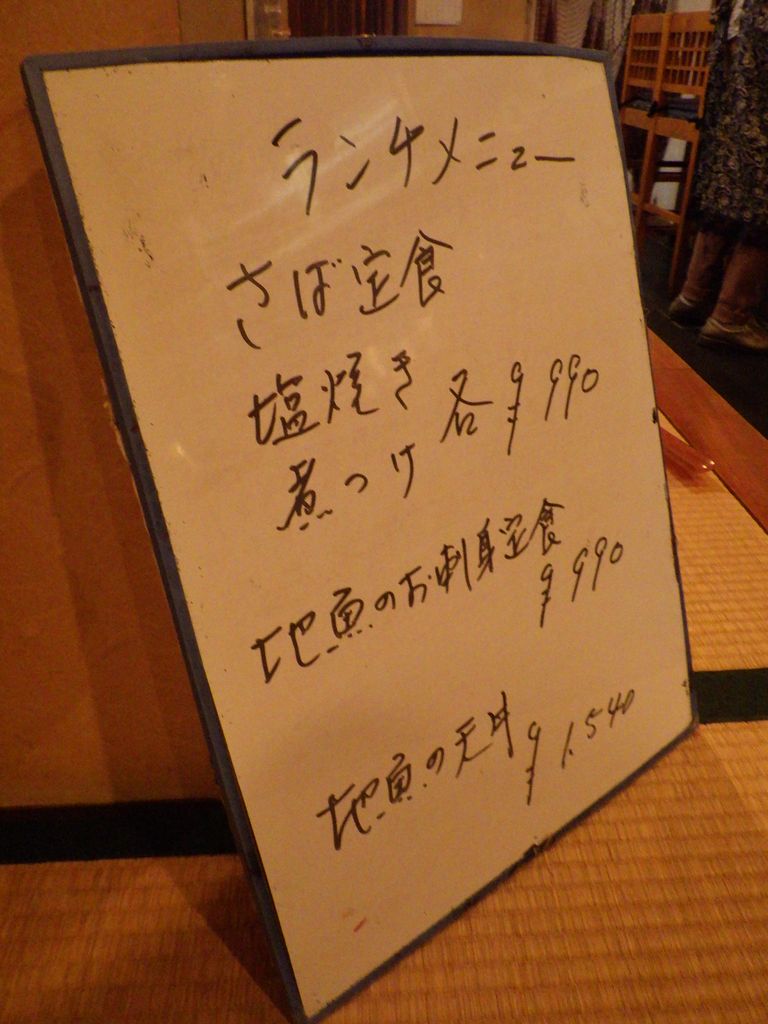 ランチメニュー
さば定食
塩焼き
煮つけ 各¥990
地魚のお刺身定食
¥990
地魚の天丼 ¥1,540